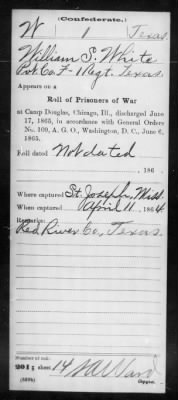 (Confederate.)
W 1 Texas
William S. White
Pvt. Co. F - 1 Regt. Texas.
Appears on a
Roll of Prisoners of War
at Camp Douglas, Chicago, Ill., discharged June
17, 1865, in accordance with General Orders
No. 109, A. G. O., Washington, D. C., June 6,
1865.
Roll dated Not dated
, 186 .
Where captured St. Joseph, Miss.
When captured April 11, 1864
Remarks:
Red River Co., Texas.
Number of roll:
201; sheet 14
Copyist.